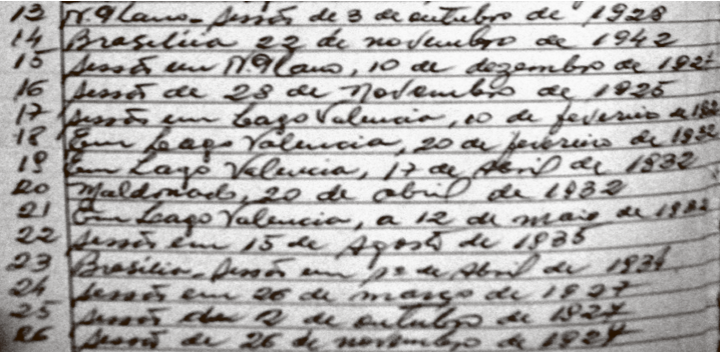 13 N. 9 Lano - sessão de 3 de outubro de 1928
14 Brasiléia 22 de novembro de 1942
15 sessão em N. 9 Lano, 10 de dezembro de
16 sessão de 28 de Novembro de 1925
17 sessão em Lago Valencia, 10 de fevereiro de
18 Em Lago Valencia, 20 de fevereiro de 1932
19 Em Lago Valencia, 17 de Abril de 1932
20 Maldonado, 20 de abril de 1932
21 Em Lago Valencia, a 12 de maio de 1932
22 sessão em 15 de Agosto de 1935
23 Brasiléia - sessão em 1º de Abril de 1934
24 sessão em 26 de março de 1927
25 sessão 2 de outubro de 1927
26 sessão de 26 de novembro de 1927